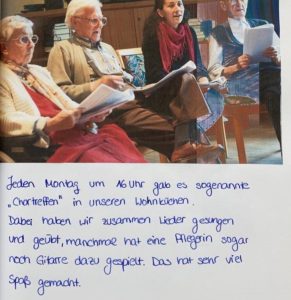 Jeden Montag um 16 Uhr gab es sogenannte
„Chortreffen" in unseren Wohnküchen.
Dabei haben wir zusammen Lieder gesungen
und geübt, manchmal hat eine Pflegerin sogar
noch Gitarre dazu gespielt. Das hat sehr viel
Spaß gemacht.